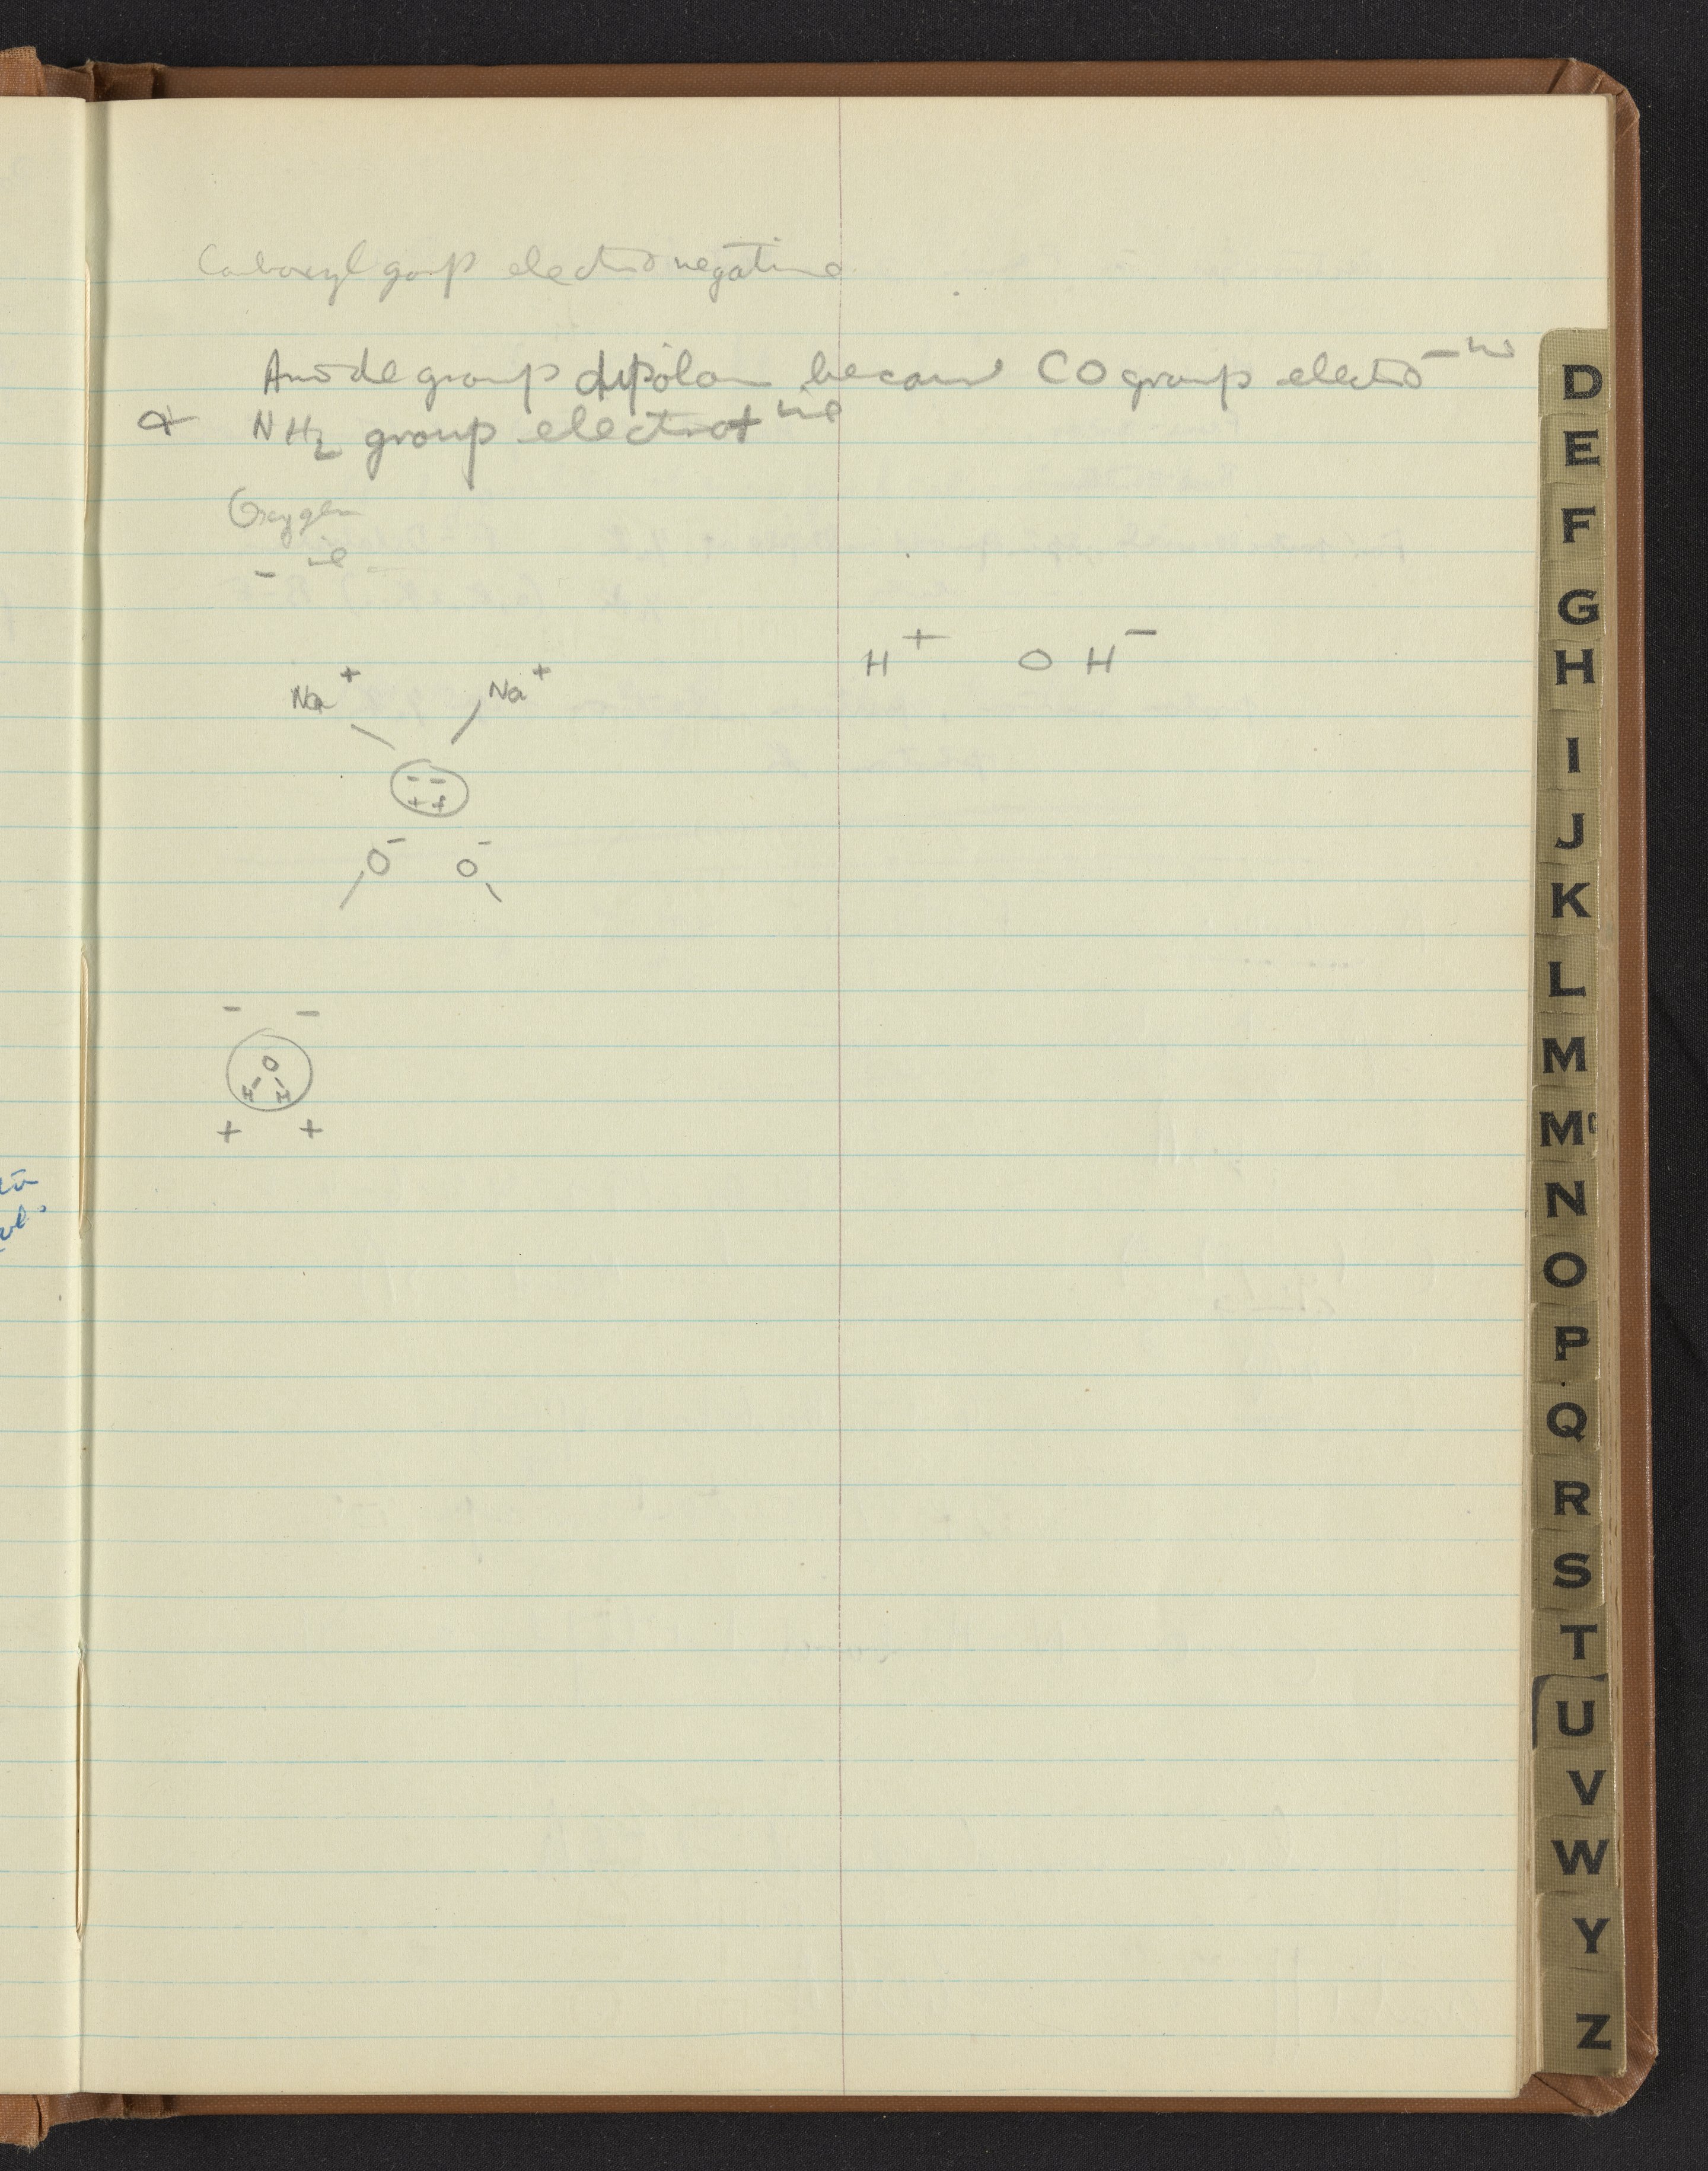 Carboxyl group electronegative
Amide group dipolar because CO group electro -ve
& NH2 group electro + ive
Oxygen
- ive
H+ OH-
Na+ Na+
- -
+ +
O- O-
- -
O
H H
+ +
D
E
F
G
H
I
J
K
L
M
Mc
N
O
P
Q
R
S
T
U
V
W
Y
Z